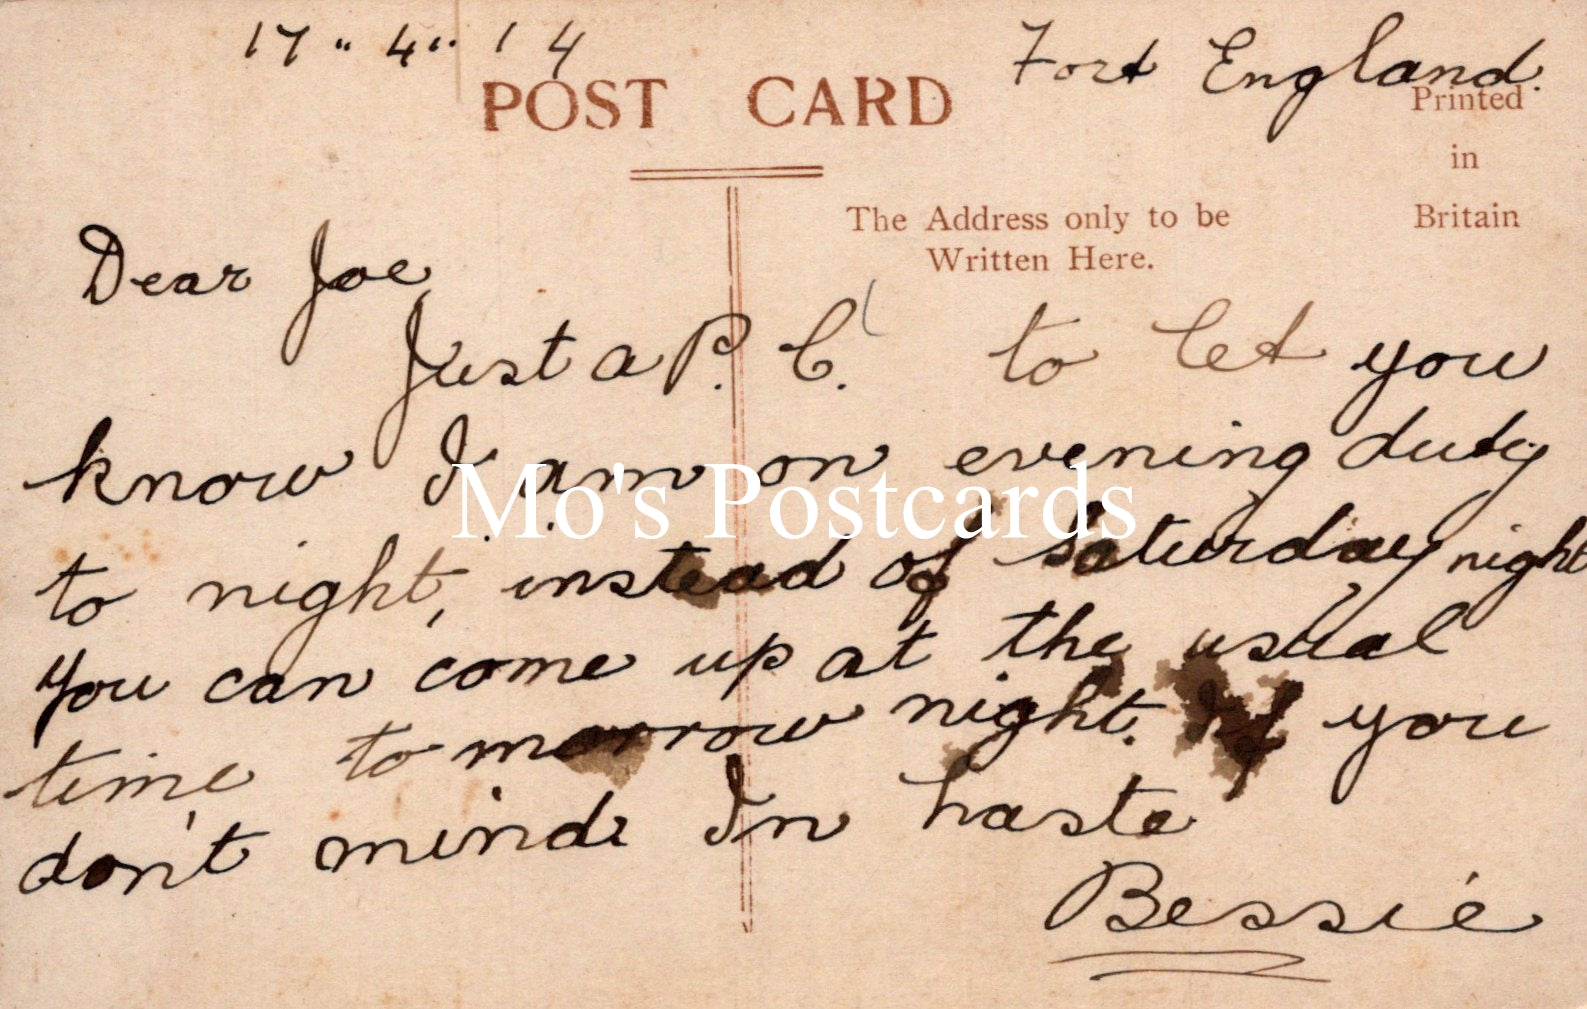 17 " 4 " 14
Fort England.
POST CARD
Printed
in
Britain
The Address only to be
Written Here.
Dear Joe,
Just a P. C. to let you
know I am on evening duty
to night, instead of Saturday night
you can come up at the usual
time to morrow night. If you
don't mind. In haste
Bessie
Mo's Postcards